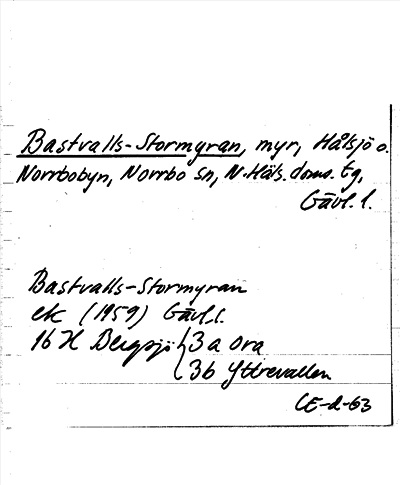 Bastvalls-Stormyran, myr, Hålsjö o.
Norrbobyn, Norrbo sn, N. Häls. doms. tg,
Gävl. l.
Bastvalls-Stormyran
ek (1959) Gävl. l.
16 H Bergsjö 3a Ora
3b Yttrevallen
CE-d-63